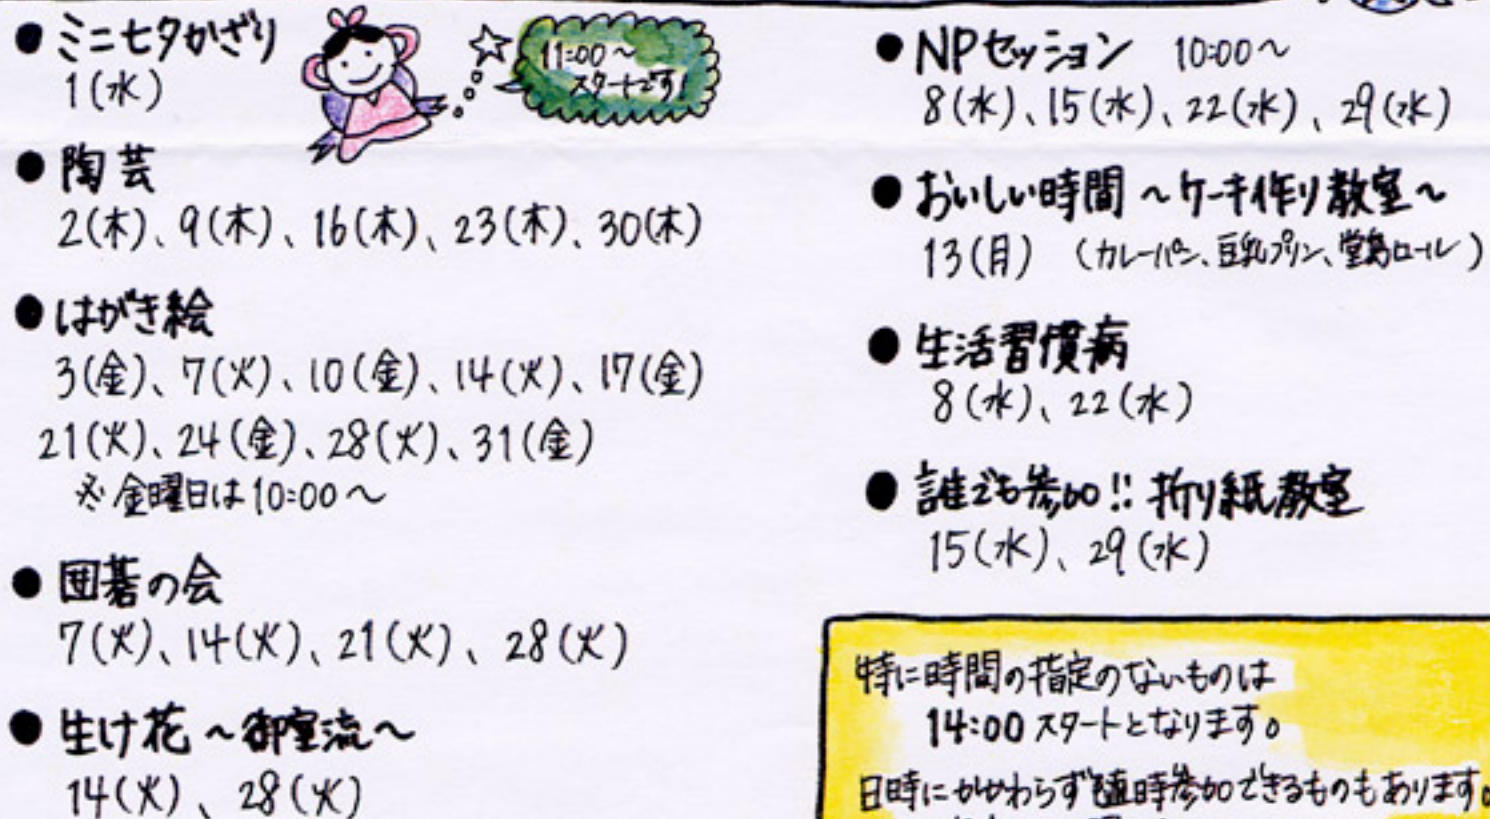 ●ミニ七夕かざり
1(水)
11:00～
スタートです!
●陶芸
2(木)、9(木)、16(木)、23(木)、30(木)
●はがき絵
3(金)、7(火)、10(金)、14(火)、17(金)
21(火)、24(金)、28(火)、31(金)
※金曜日は10:00～
●囲碁の会
7(火)、14(火)、21(火)、28(火)
●生け花～御室流～
14(火)、28(火)
●NPセッション 10:00～
8(水)、15(水)、22(水)、29(水)
●おいしい時間～ケーキ作り教室～
13(月) (カレーパン、豆乳プリン、堂島ロール)
●生活習慣病
8(水)、22(水)
●誰でも参加!!折り紙教室
15(水)、29(水)
特に時間の指定のないものは
14:00スタートとなります。
日時にかかわらず随時参加できるものもあります。